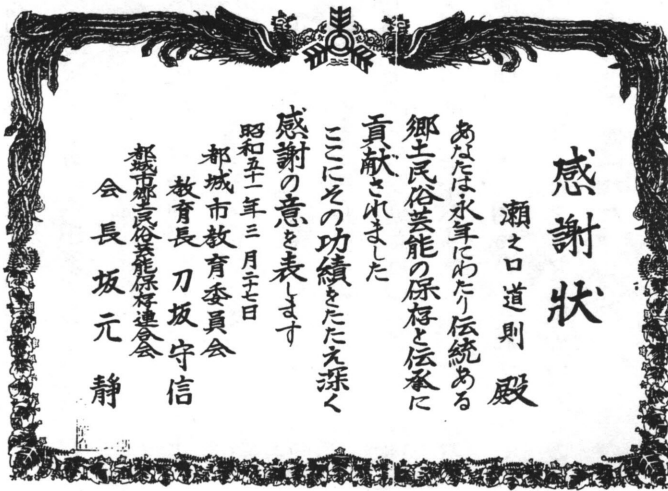 感謝状
瀬之口道則 殿
あなたは永年にわたり伝統ある
郷土民俗芸能の保存と伝承に
貢献されました
ここにその功績をたたえ深く
感謝の意を表します
昭和五十一年三月二十七日
都城市教育委員会
教育長 刀坂守信
都城市郷土民俗芸能保存連合会
会長 坂元静